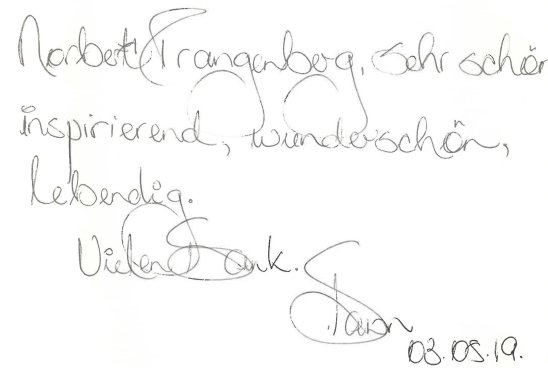 Norbert Prangenberg, sehr schön
inspirierend, wunderschön,
lebendig.
Vielen Dank.
03.05.19.